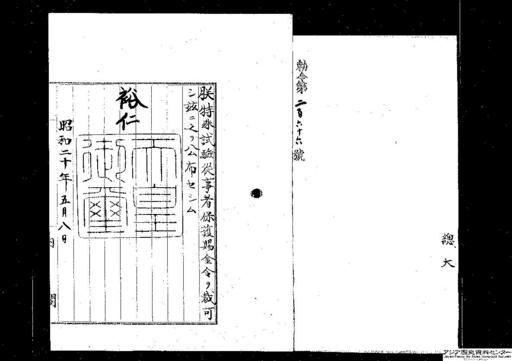 勅令第二百六十六號
總大
朕特殊試驗從事者保護賜金令ヲ裁可
シ茲ニ之ヲ公布セシム
裕仁
天皇
御璽
昭和二十年五月八日
内閣
アジア歴史資料センター